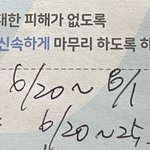 대한 피해가 없도록
신속하게 마무리 하도록 하
6/20~ 8/1
6/20~25.